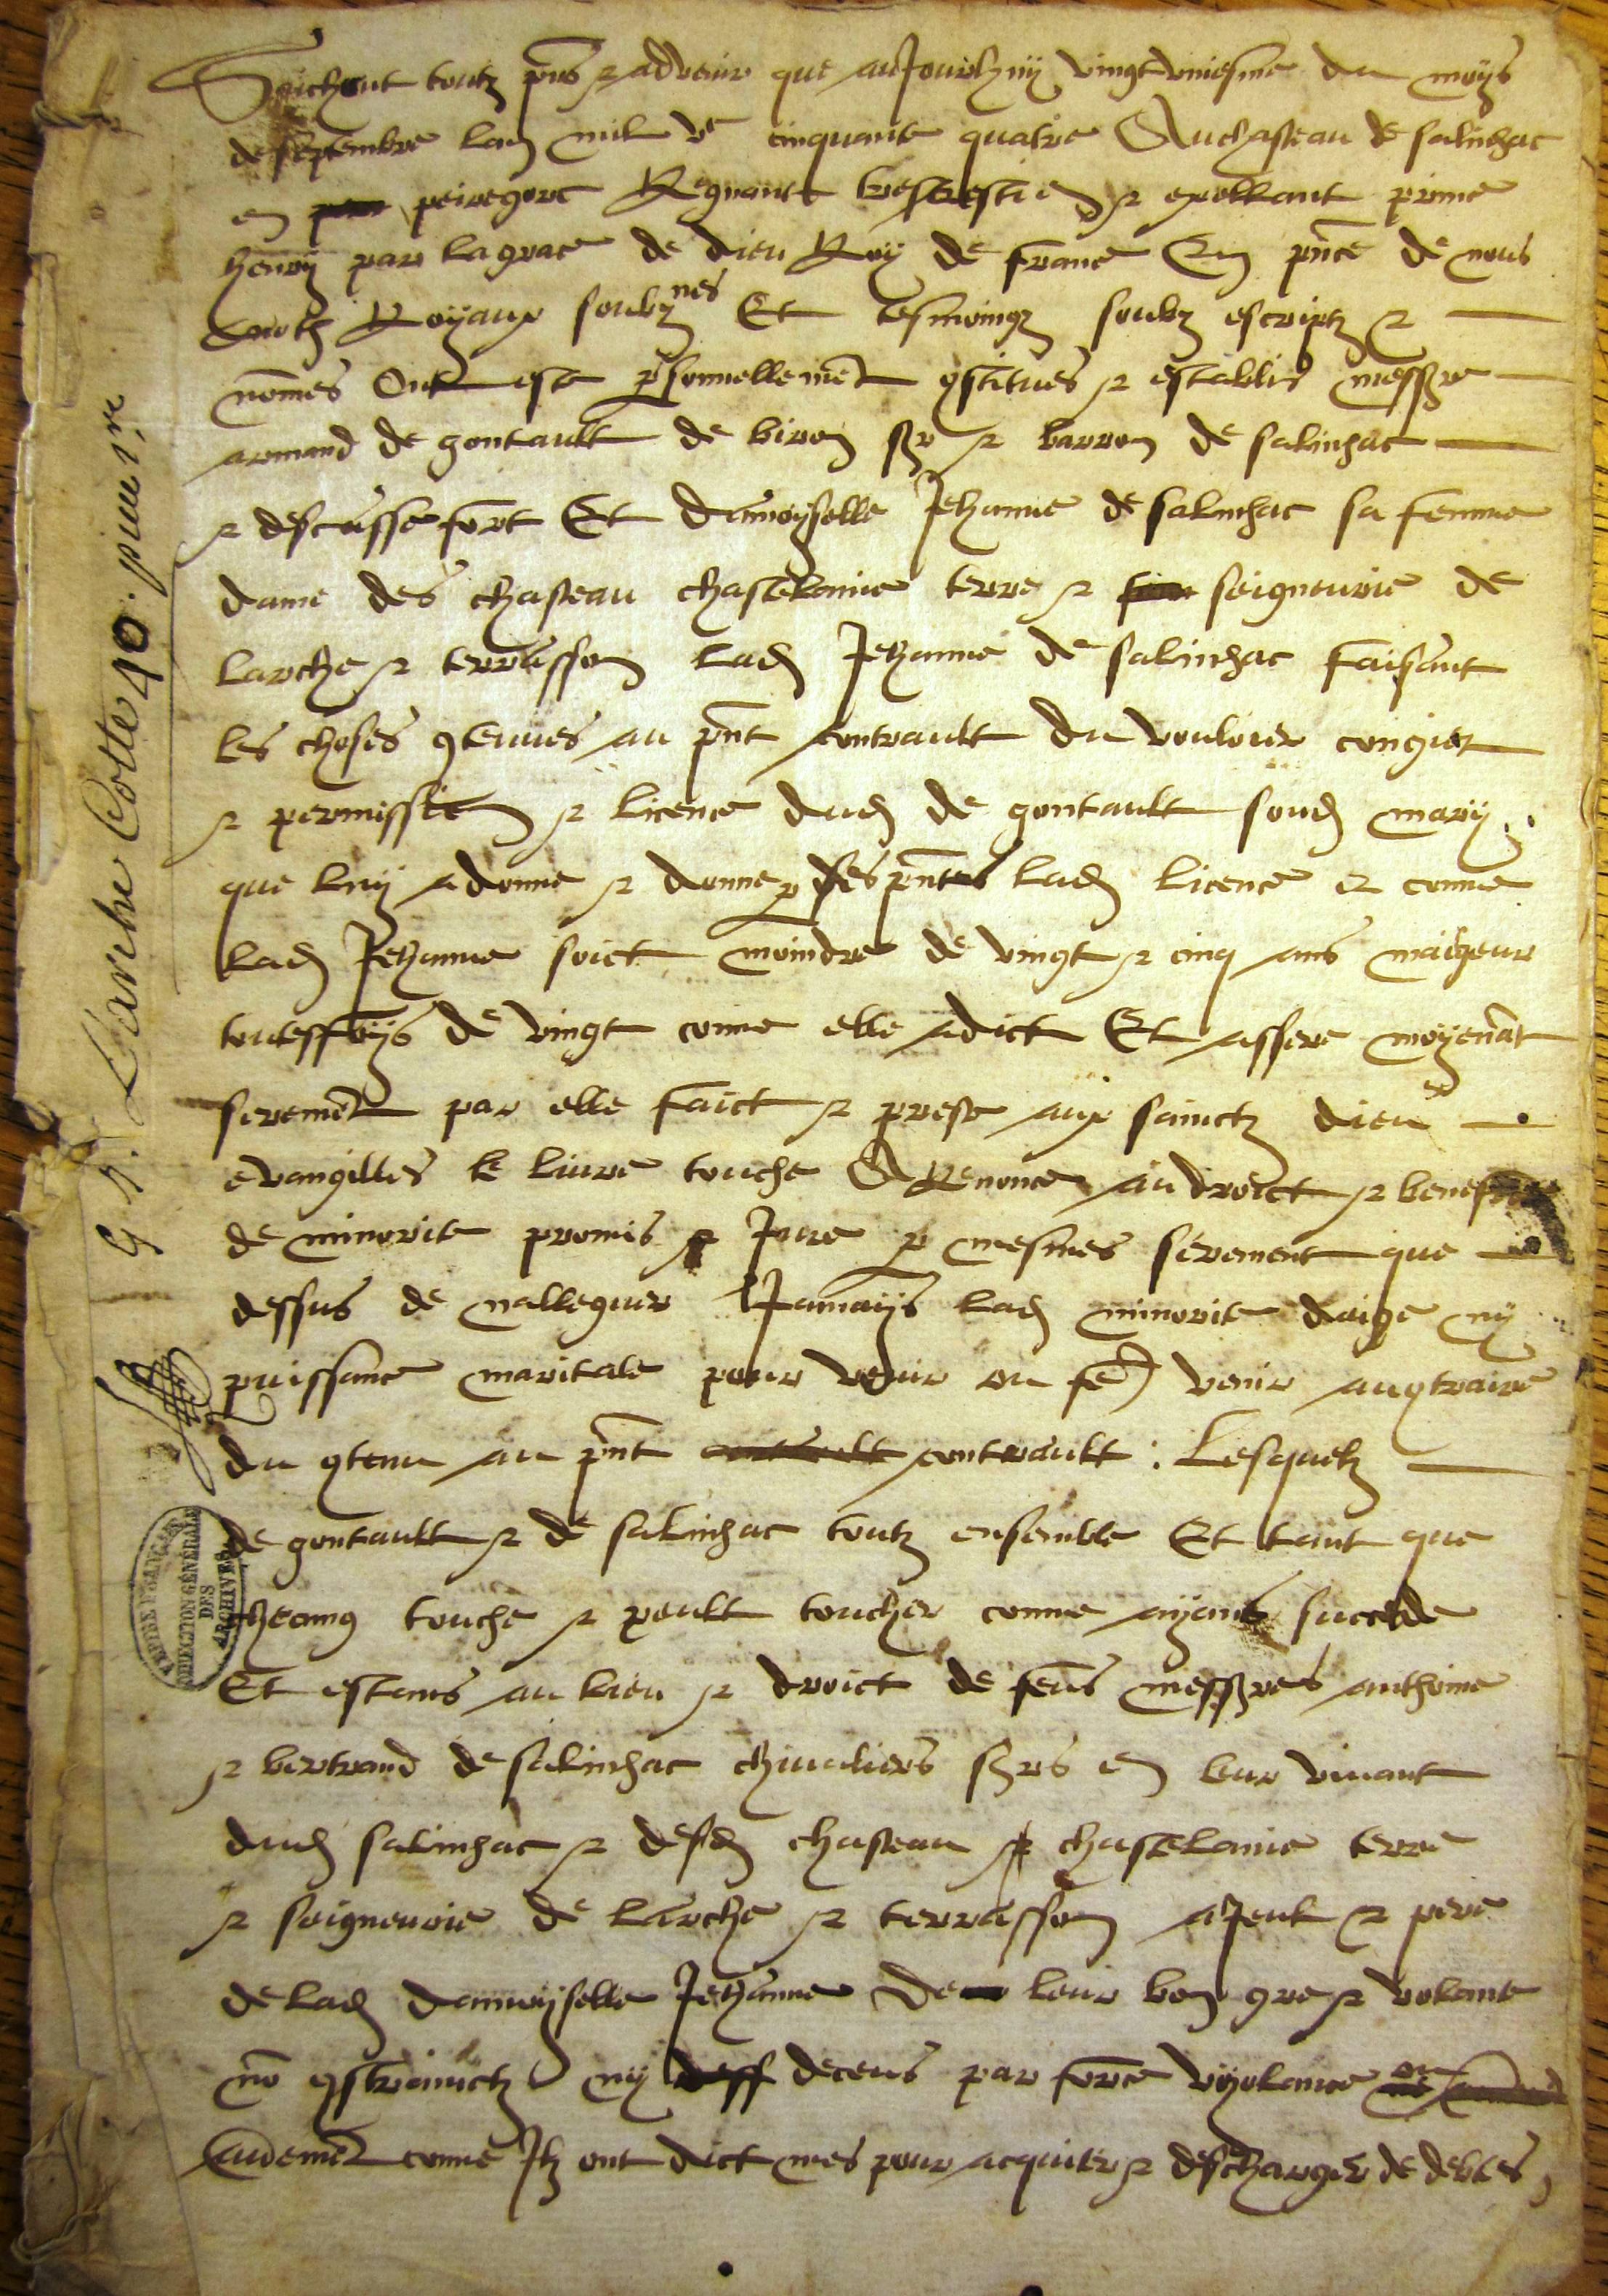 Saichent toutz pns & advenir que auJourdhuy vingt uniesme du moys
de septembre lan mil vc cinquante quatre Au chasteau de salinhac
en peiregort Regnant trescrestien & exellant prince
henry par la grace de dieu Roy de france En pnce de nous
notres Royaux soubz nes Et tesmoingz soubz escriptz &
nommes Ont este psonnellement 9stitues & establis messre
armand de gontault de biron sr & barron de salinhac
& descussefort Et damoyselle Jehanne de salinhac sa femme
dame des chasteau chastelanie terre & seigneurie de
larche & terrasson lad Jehanne de salinhac faisant
les choses 9tenues au pnt contrault du vouloir congiet
& permission & licence dud de gontault soud mary
que luy a donne & donne p ses pntes lad licence et comme
lad Jehanne soict moindre de vingt & cinq ans maigeur
touteffoys de vingt comme elle a dict Et assere moyenat
serement par elle faict & preste aux sainctz dieu
evangilles le livre touche A Renonce au droict & benefice
de minorite promis & Jure p mesmes serement que
dessus de nalleguer Jamays lad minorite daige ny
puissance maritale pour venir ou fe venir au 9traire
du 9tenu au pnt contrault : Lesquelz
de gontault & de salinhac toutz ensemble Et tant que
checung touche & peult toucher comme ayant succede
Et estans au lieu & droict de feus messres anthoine
& bertrand de salinhac chivaliers srs en leur vivant
dud salinhac & desd chasteau & chastelanie terre
& seigneurie de larche & terrasson aJeul & pere
de lad damoyselle Jehanne De leur bon gre & volante
no 9strainctz ny deceus par force vyolance ou
audement comme Ilz ont dict mes pour acquiter & descharger de debtes,
L'arche Cotte 40. pmeire
EMPIRE FRANÇAIS
DIRECTION GÉNÉRALE
DES
ARCHIVES